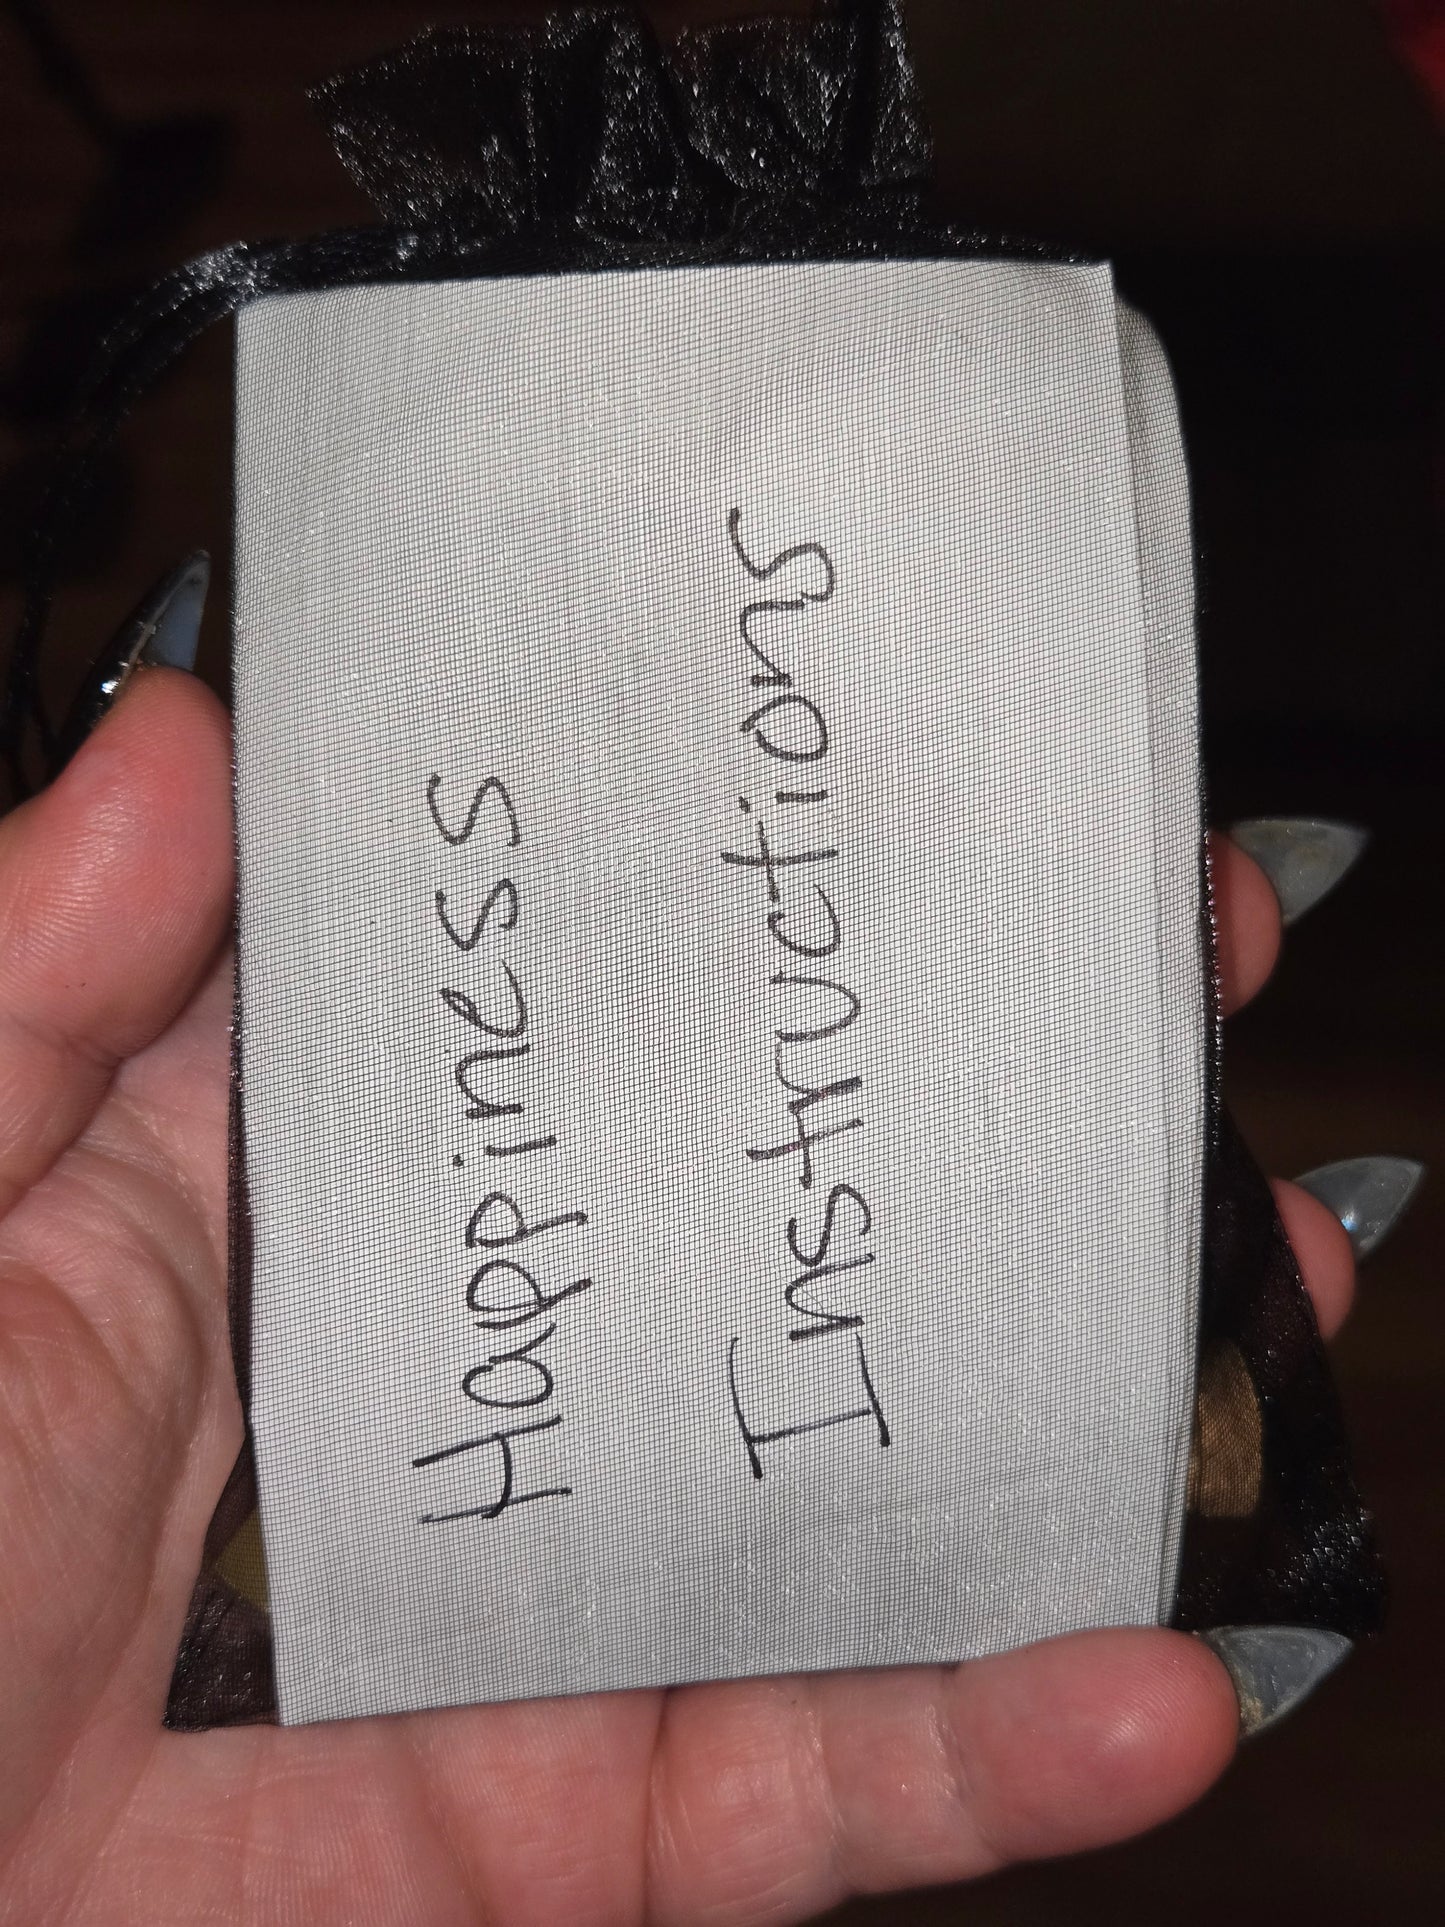 Happiness
Instructions